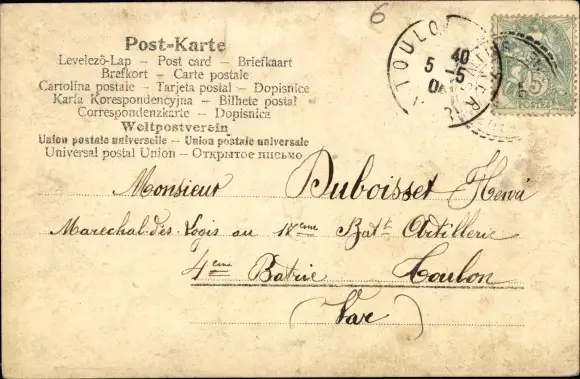 6
Post-Karte
Levelező-Lap – Post card – Briefkaart
Brefkort – Carte postale
Cartolina postale – Tarjeta postal – Dopisnice
Karta Korespondencyjna – Bilhete postal
Correspondenzkarte – Dopisnica
Weltpostverein
Union postale universelle – Union postale universale
Universal postal Union – Открытое письмо
TOULO
5 40
-5
5
POSTES
Monsieur Duboisset Henri
Marechal-des-Logis au eme Batt Artillerie
4eme Batrie Toulon
(Var)